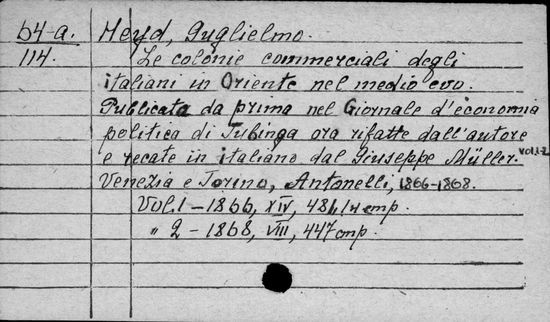 64-a. Heyd, Guglielmo.
114. Le colonie commerciali degli
italiani in Oriente nel medio evo.
Publicata da prima nel Giornale d'economia
politica di Tubinga ora rifatte dall'autore
e recate in italiano dal Giuseppe Müller. vol.1-2
Venezia e Torino, Antonelli, 1866-1868.
Vol.1 - 1866, XIV, 486,
" 2 - 1868, VIII, 447 стр.